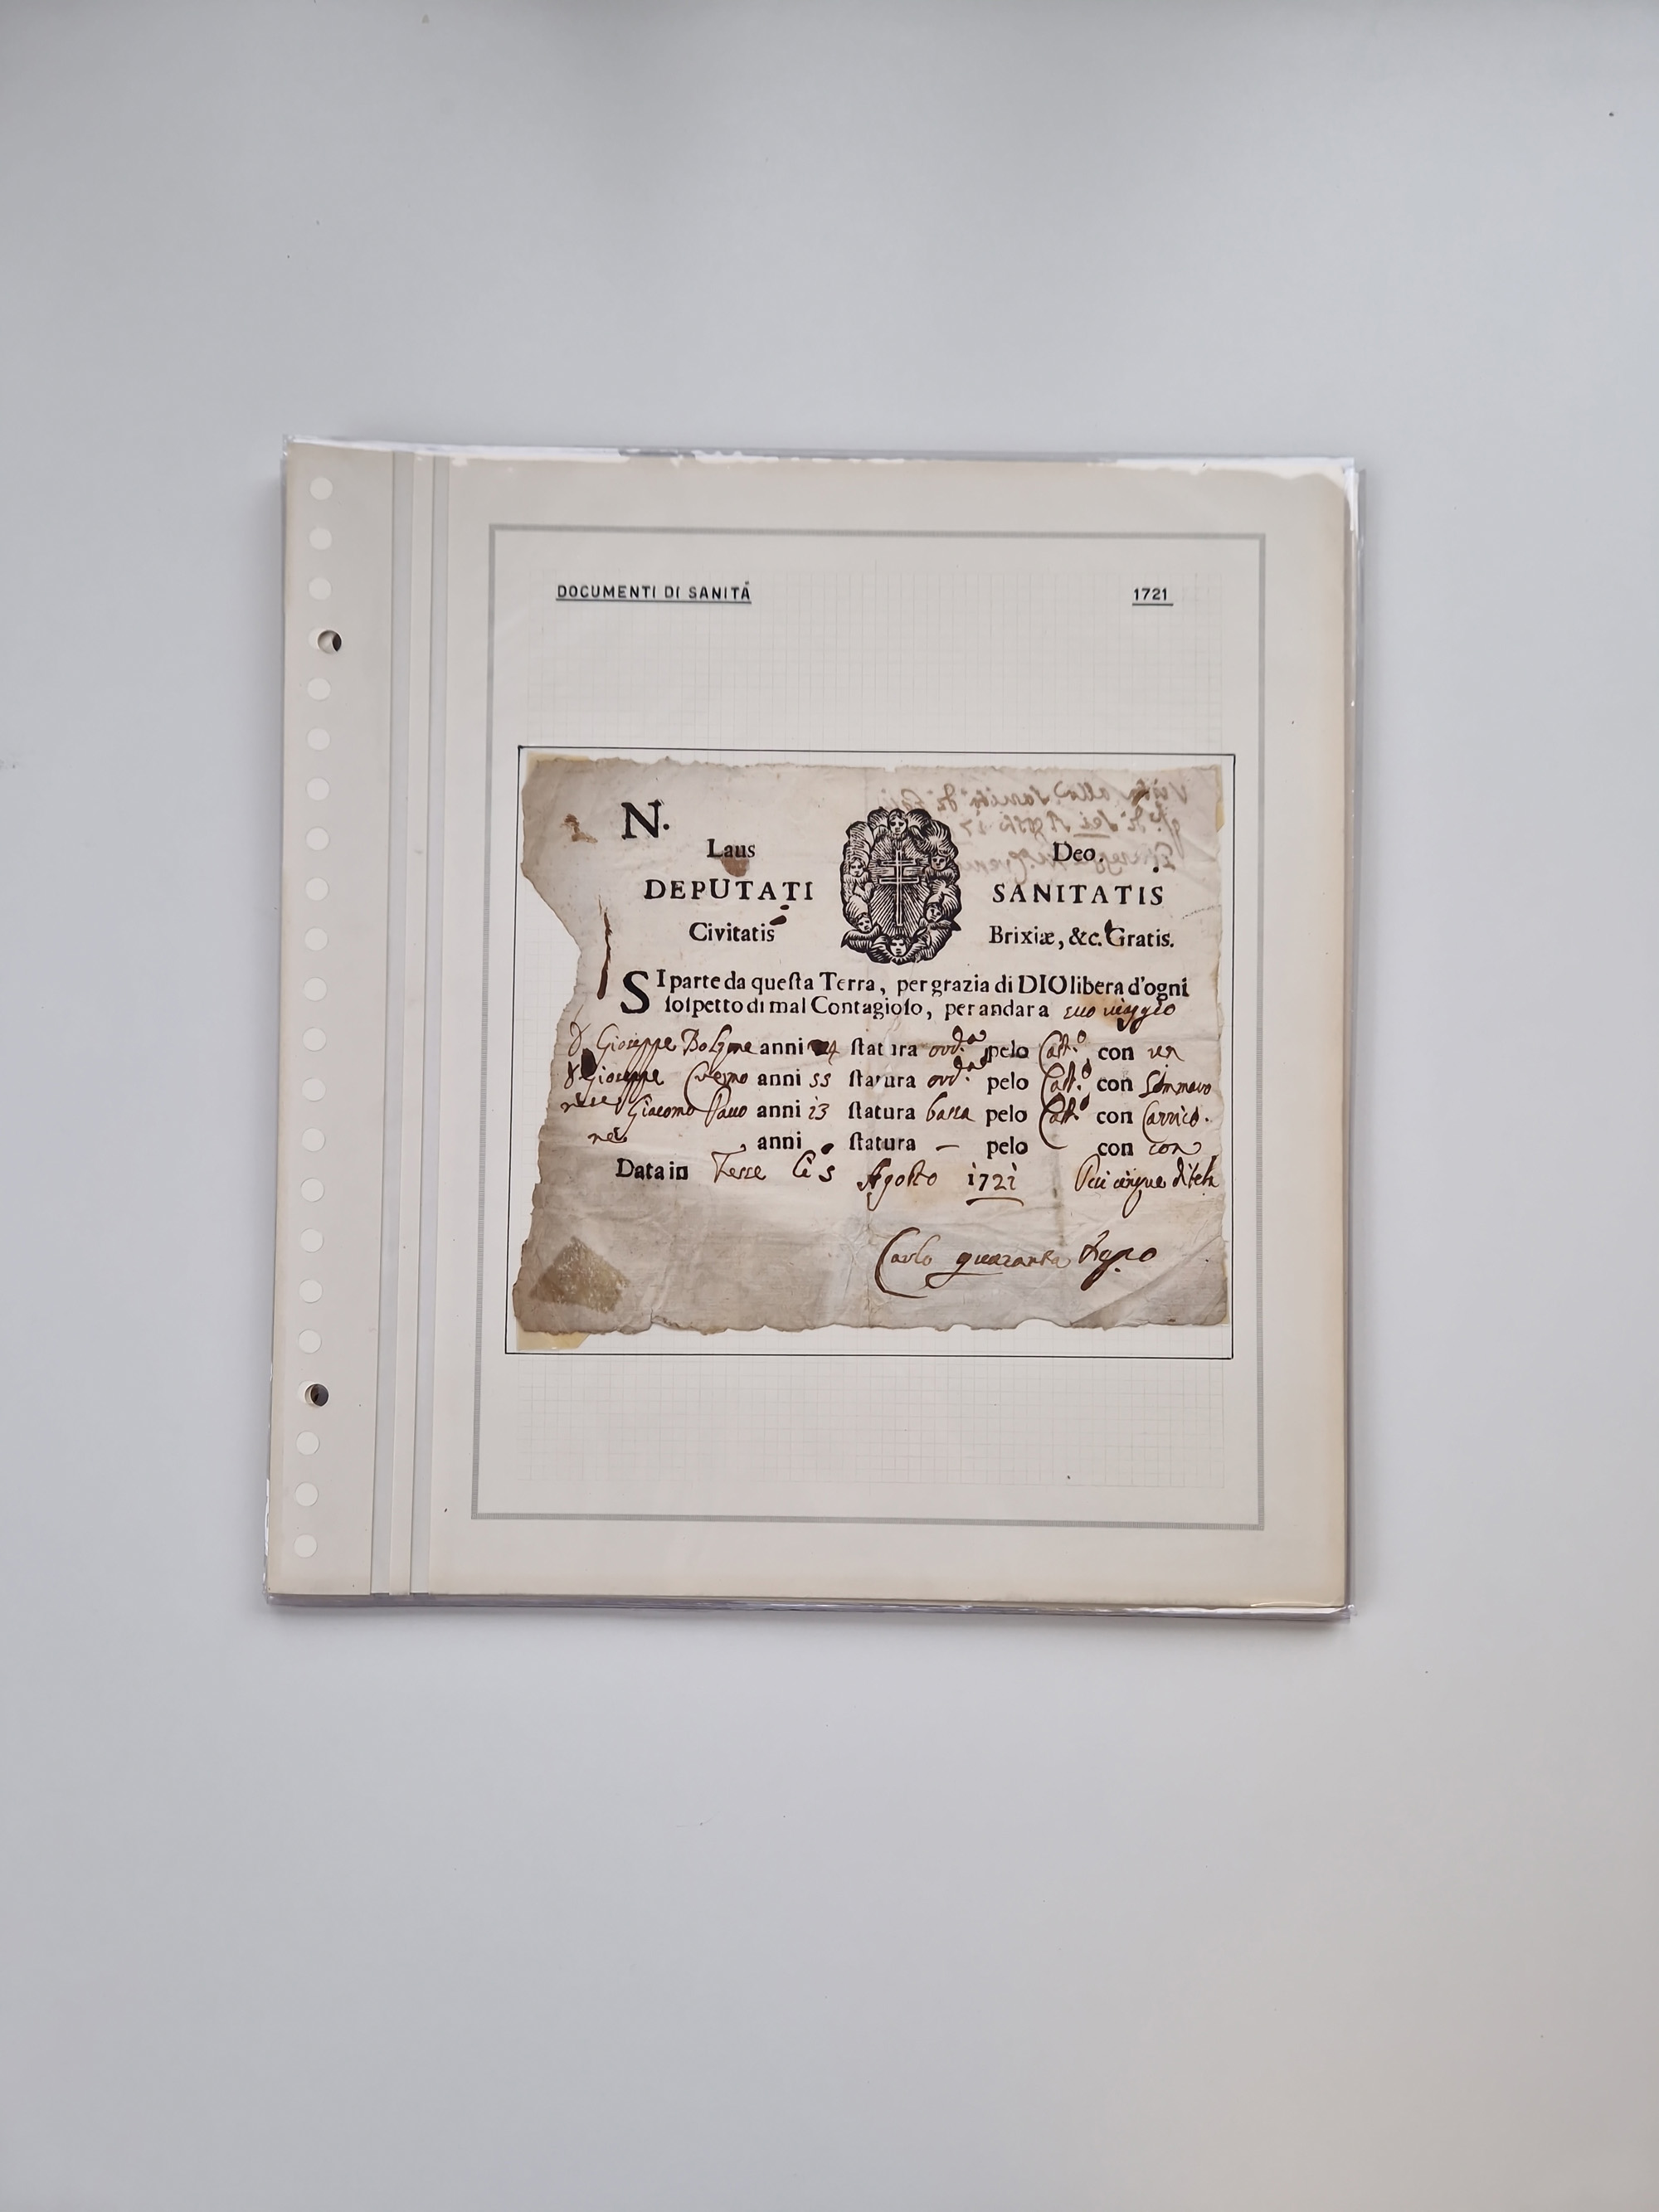 DOCUMENTI DI SANITÁ 1721
N.
Laus Deo.
DEPUTATI SANITATIS
Civitatis Brixiæ, &c. Gratis.
SI parte da queſta Terra, per grazia di DIO libera d'ogni
ſoſpetto di mal Contagioſo, per andar a suo viaggio
Gioseppe anni statura ord.a pelo Cast.o con
Gioseppe anni 55 ſtatura ord.a pelo Cast.o con
Giacomo anni 13 ſtatura bassa pelo Cast.o con
anni ſtatura – pelo con con
Data in li 5 Agosto 1721
Carlo quaranta